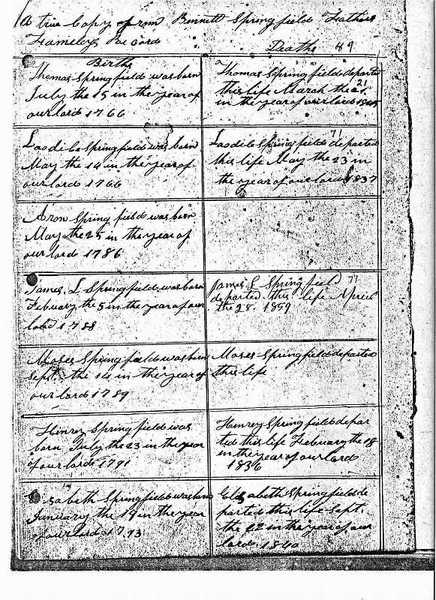 A true Copy of rom Bennett Springfield Fathers
Fameley Record
Births
Deaths 49
Thomas Springfield was born
July the 15 in the year of
our lord 1766
Thomas Springfield departed
this life March the 21
in the year of our lord
Laodila Springfield was born
May the 14 in the year of
our lord 1766
Laodile Springfield departed
71
this life May the 23 in
the year of our lord 1837
Aron Springfield was born
May the 25 in the year of
our lord 1786
James. L Springfield was born
February the 5 in the year of our
lord 1788
James L Springfield
71
departed this life April
the 28. 1859
Moses Springfield was born
Sept. the 14 in the year of
our lord 1789
Moses Springfield departed
this life
Henrey Springfield was
born July the 23 in the year
of our lord 1791
Henrey Springfield depar
ted this life February the 18
in the year of our lord
1836
Elisabeth Springfield was born
January the 19 in the year
of our lord 1793
Elisabeth Springfield de
parted this life Sept.
the 22 in the year of our
lord 1840